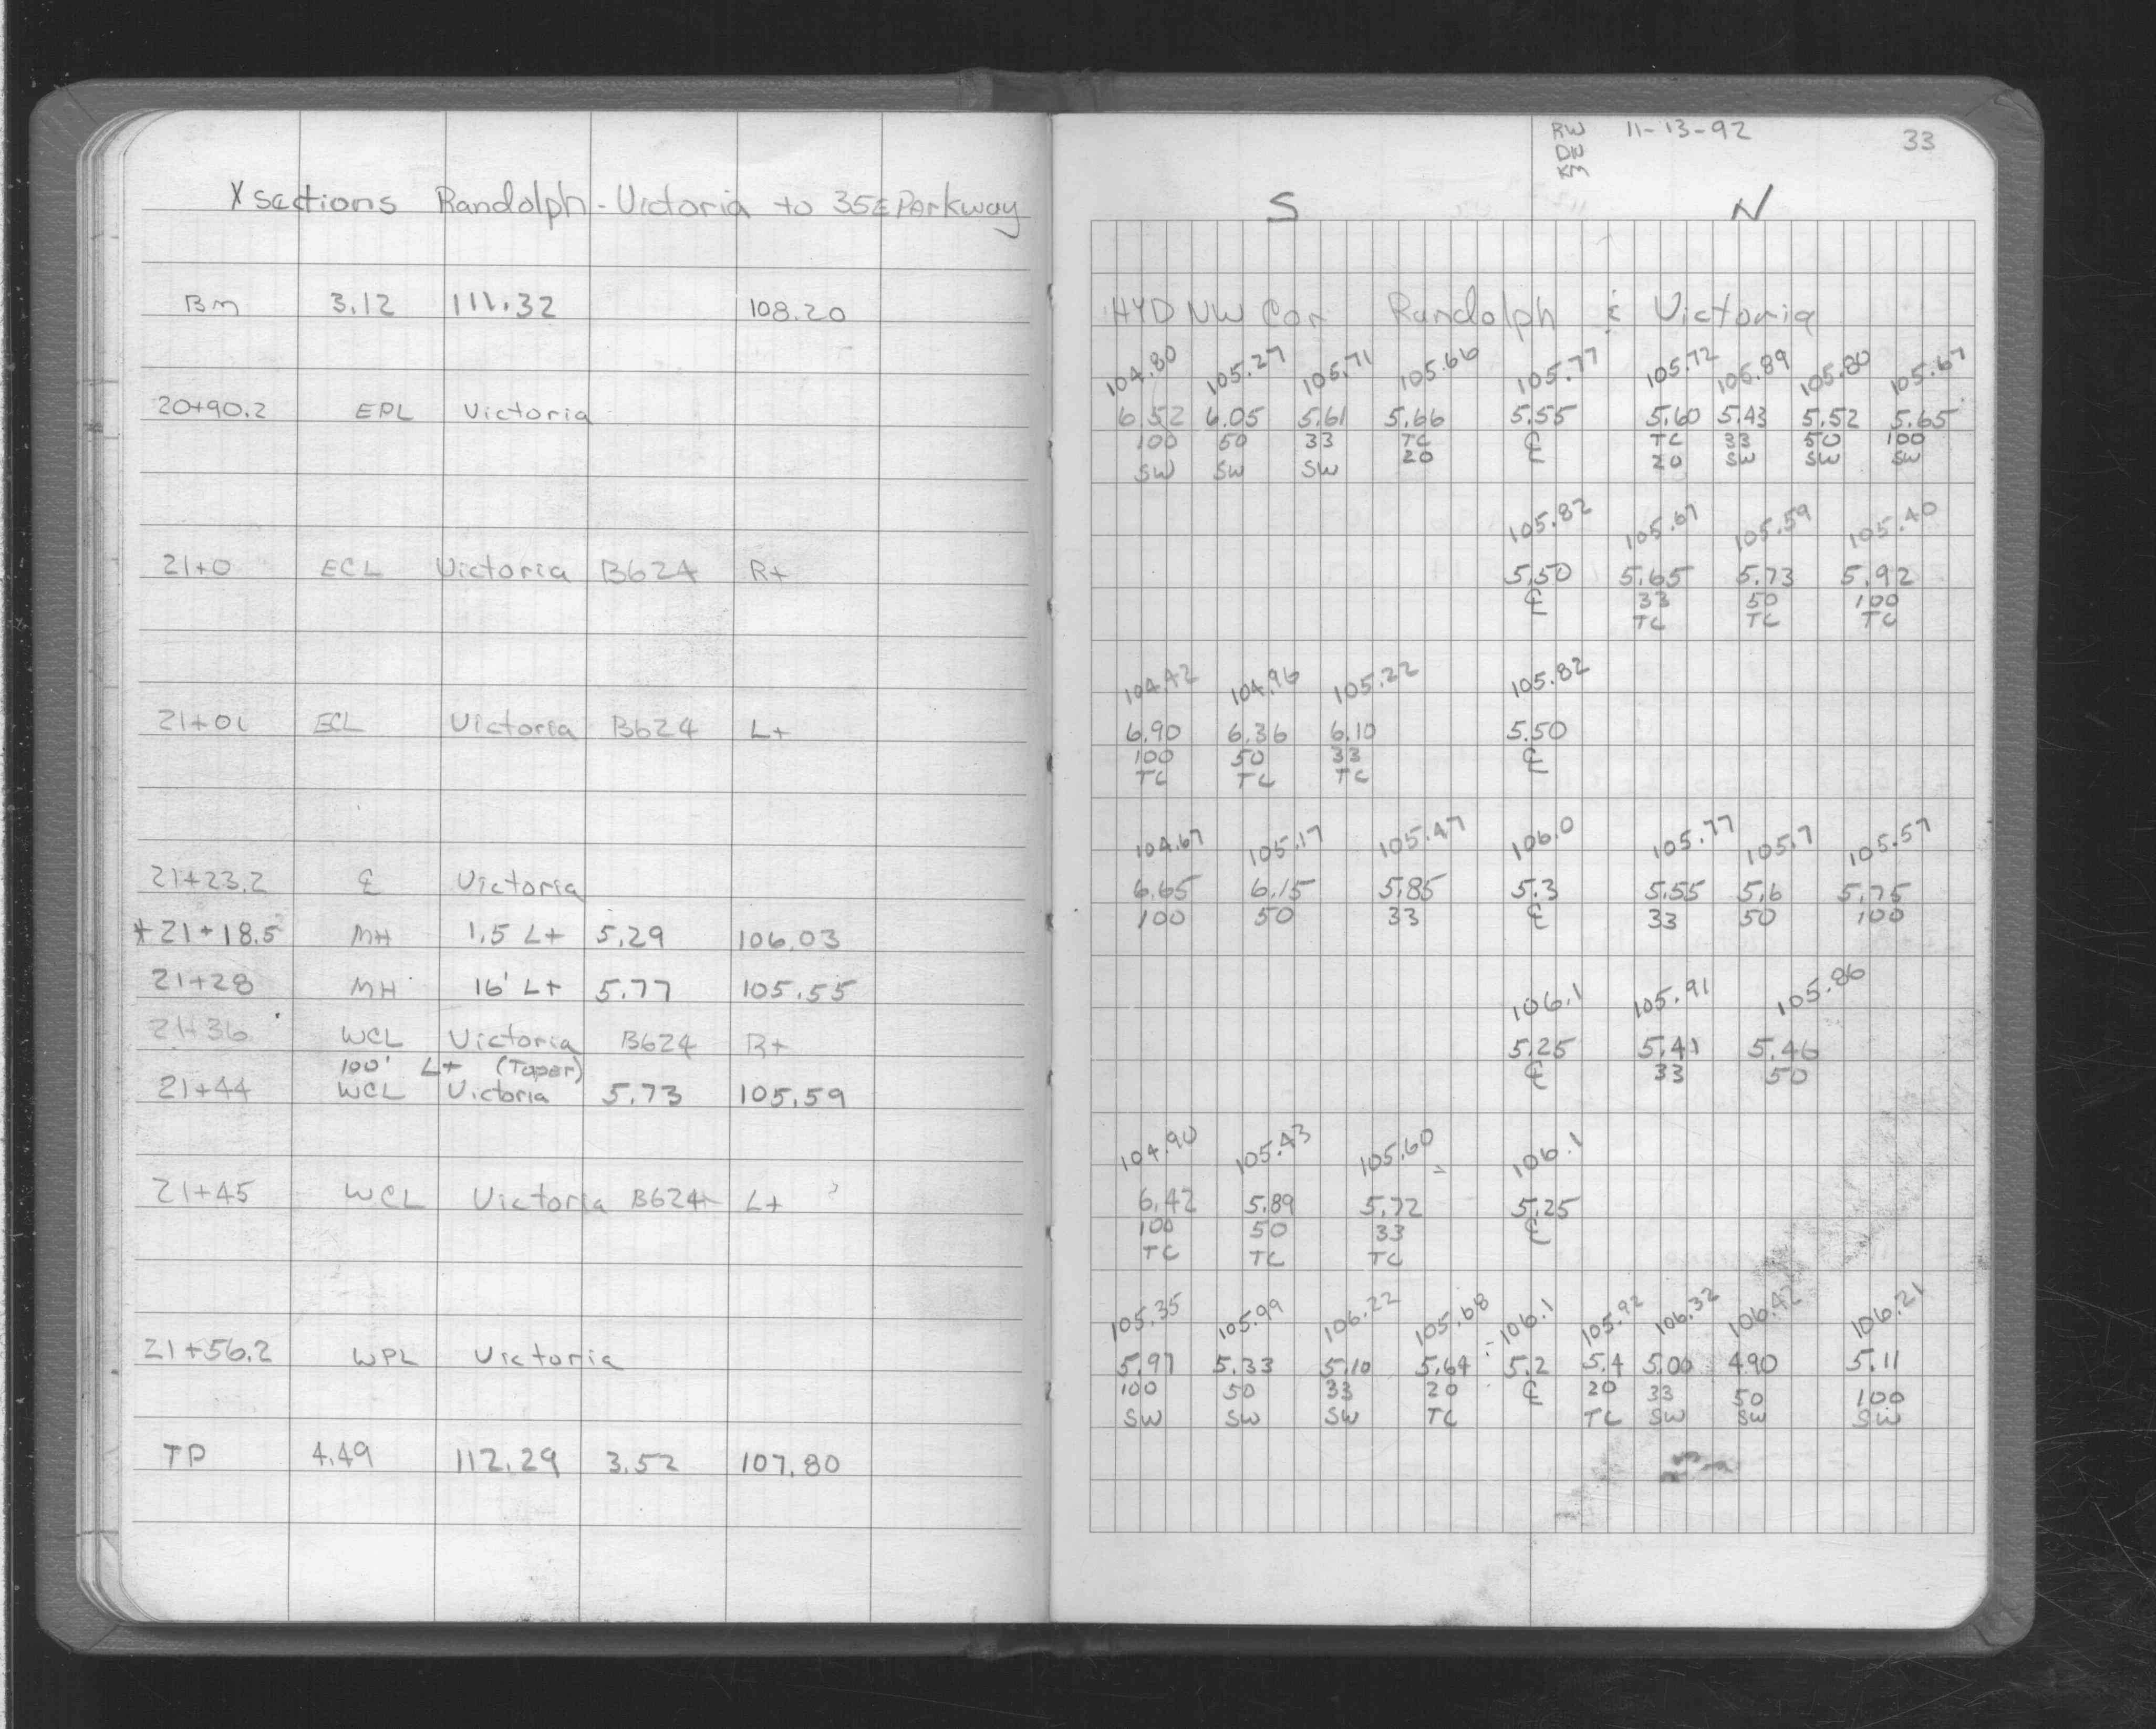 X sections Randolph - Victoria to 35E Parkway
BM 3.12 111.32 108.20
20+90.2 EPL Victoria
21+0 ECL Victoria B624 R+
21+01 ECL Victoria B624 L+
21+23.2 ℄ Victoria
*21+18.5 MH 1.5 L+ 5.29 106.03
21+28 MH 16' L+ 5.77 105.55
21+36 WCL Victoria B624 R+
100' L+ (Taper)
21+44 WCL Victoria 5.73 105.59
21+45 WCL Victoria B624 L+
21+56.2 WPL Victoria
TP 4.49 112.29 3.52 107.80
RW 11-13-92 33
DW
KM
S N
HYD NW Cor Randolph & Victoria
104.80 105.27 105.71 105.66 105.77 105.72 105.89 105.80 105.67
6.52 6.05 5.61 5.66 5.55 5.60 5.43 5.52 5.65
100 50 33 TC ℄ TC 33 50 100
SW SW SW 20 20 SW SW SW
105.82 105.67 105.59 105.40
5.50 5.65 5.73 5.92
℄ 33 50 100
TC TC TC
104.42 104.96 105.22 105.82
6.90 6.36 6.10 5.50
100 50 33 ℄
TC TC TC
104.67 105.17 105.47 106.0 105.77 105.7 105.57
6.65 6.15 5.85 5.3 5.55 5.6 5.75
100 50 33 ℄ 33 50 100
106.1 105.91 105.86
5.25 5.41 5.46
℄ 33 50
104.90 105.43 105.60 106.1
6.42 5.89 5.72 5.25
100 50 33 ℄
TC TC TC
105.35 105.99 106.22 105.68 106.1 105.92 106.32 106.42 106.21
5.97 5.33 5.10 5.64 5.2 5.4 5.00 4.90 5.11
100 50 33 20 ℄ 20 33 50 100
SW SW SW TC TC SW SW SW